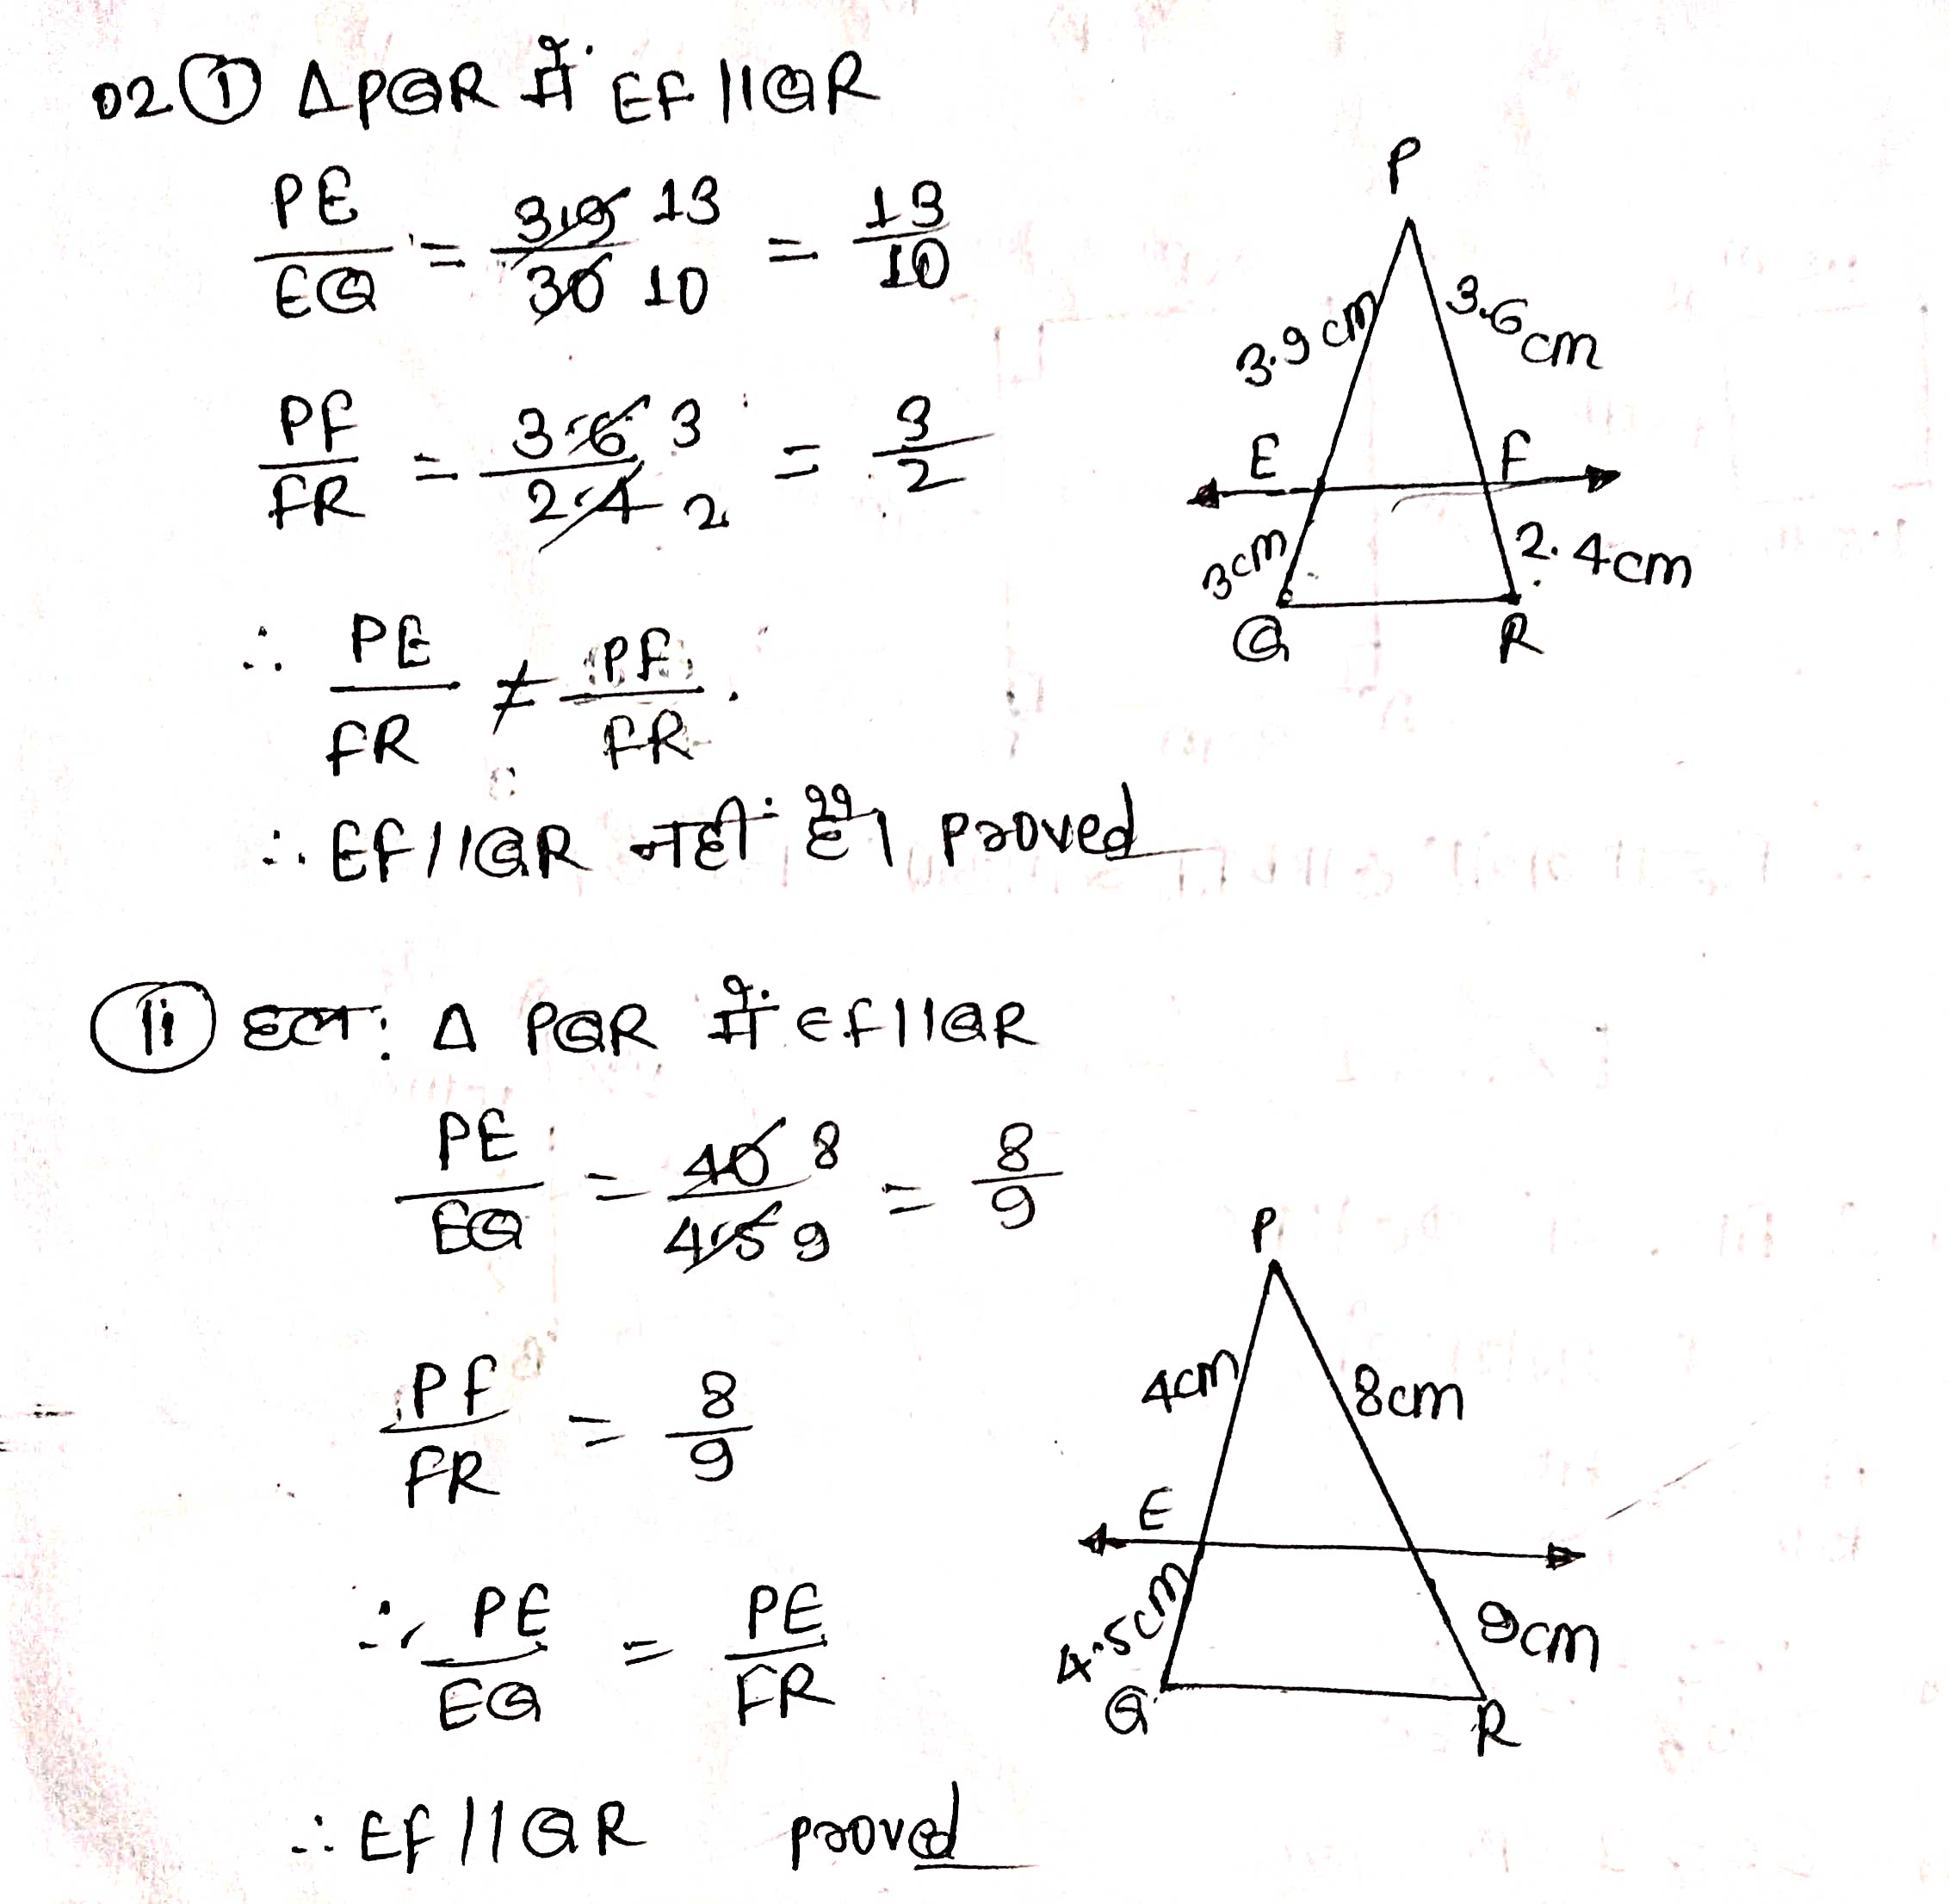 02 (i) Δ PQR में EF || QR
PE/EQ = 3.9/30 13/10 = 13/10
PF/FR = 3.6/2.4 3/2 = 3/2
∴ PE/FR ≠ PF/FR.
∴ EF || QR नहीं है। proved
P
3.9 cm
3.6 cm
E
F
3cm
2.4cm
Q
R
(ii) हल: Δ PQR में EF || QR
PE/EQ = 40/4.5 8/9 = 8/9
PF/FR = 8/9
∴ PE/EQ = PE/FR
∴ EF || QR proved
P
4cm
8cm
E
4.5cm
9cm
Q
R